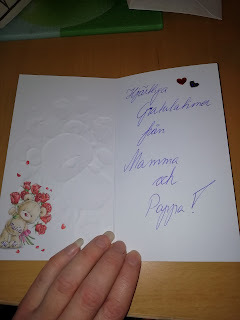 Hjärtliga
Gratulationer
från
Mamma
och
Pappa!